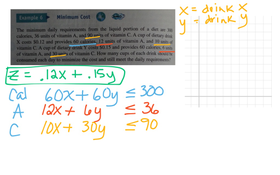 Example 5 Minimum Cost
The minimum daily requirements from the liquid portion of a diet are 300
calories, 36 units of vitamin A, and 90 units of vitamin C. A cup of dietary drink
X costs $0.12 and provides 60 calories, 12 units of vitamin A, and 10 units of
vitamin C. A cup of dietary drink Y costs $0.15 and provides 60 calories, 6 units
of vitamin A, and 30 units of vitamin C. How many cups of each drink should be
consumed each day to minimize the cost and still meet the daily requirements?
x = drink x
y = drink y
Z = .12x + .15y
Cal 60x + 60y ≤ 300
A 12x + 6y ≤ 36
C 10x + 30y ≤ 90